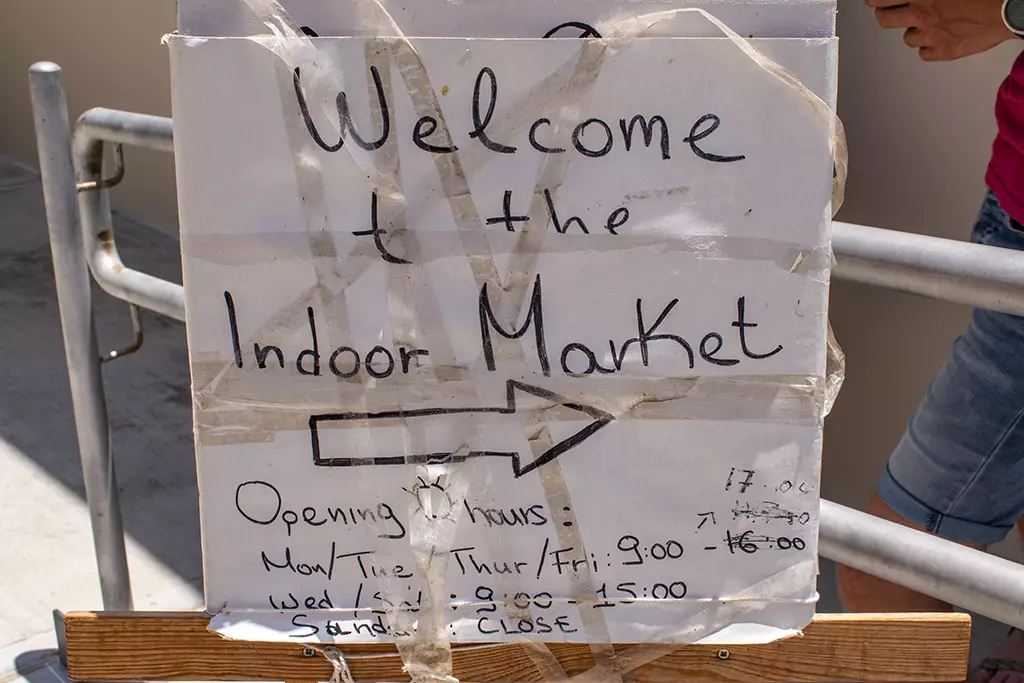 Welcome
t the
Indoor Market
Opening hours:
17.00
Mon/Tue/Thur/Fri: 9:00 - 16:00
Wed/Sat: 9:00 - 15:00
: CLOSE